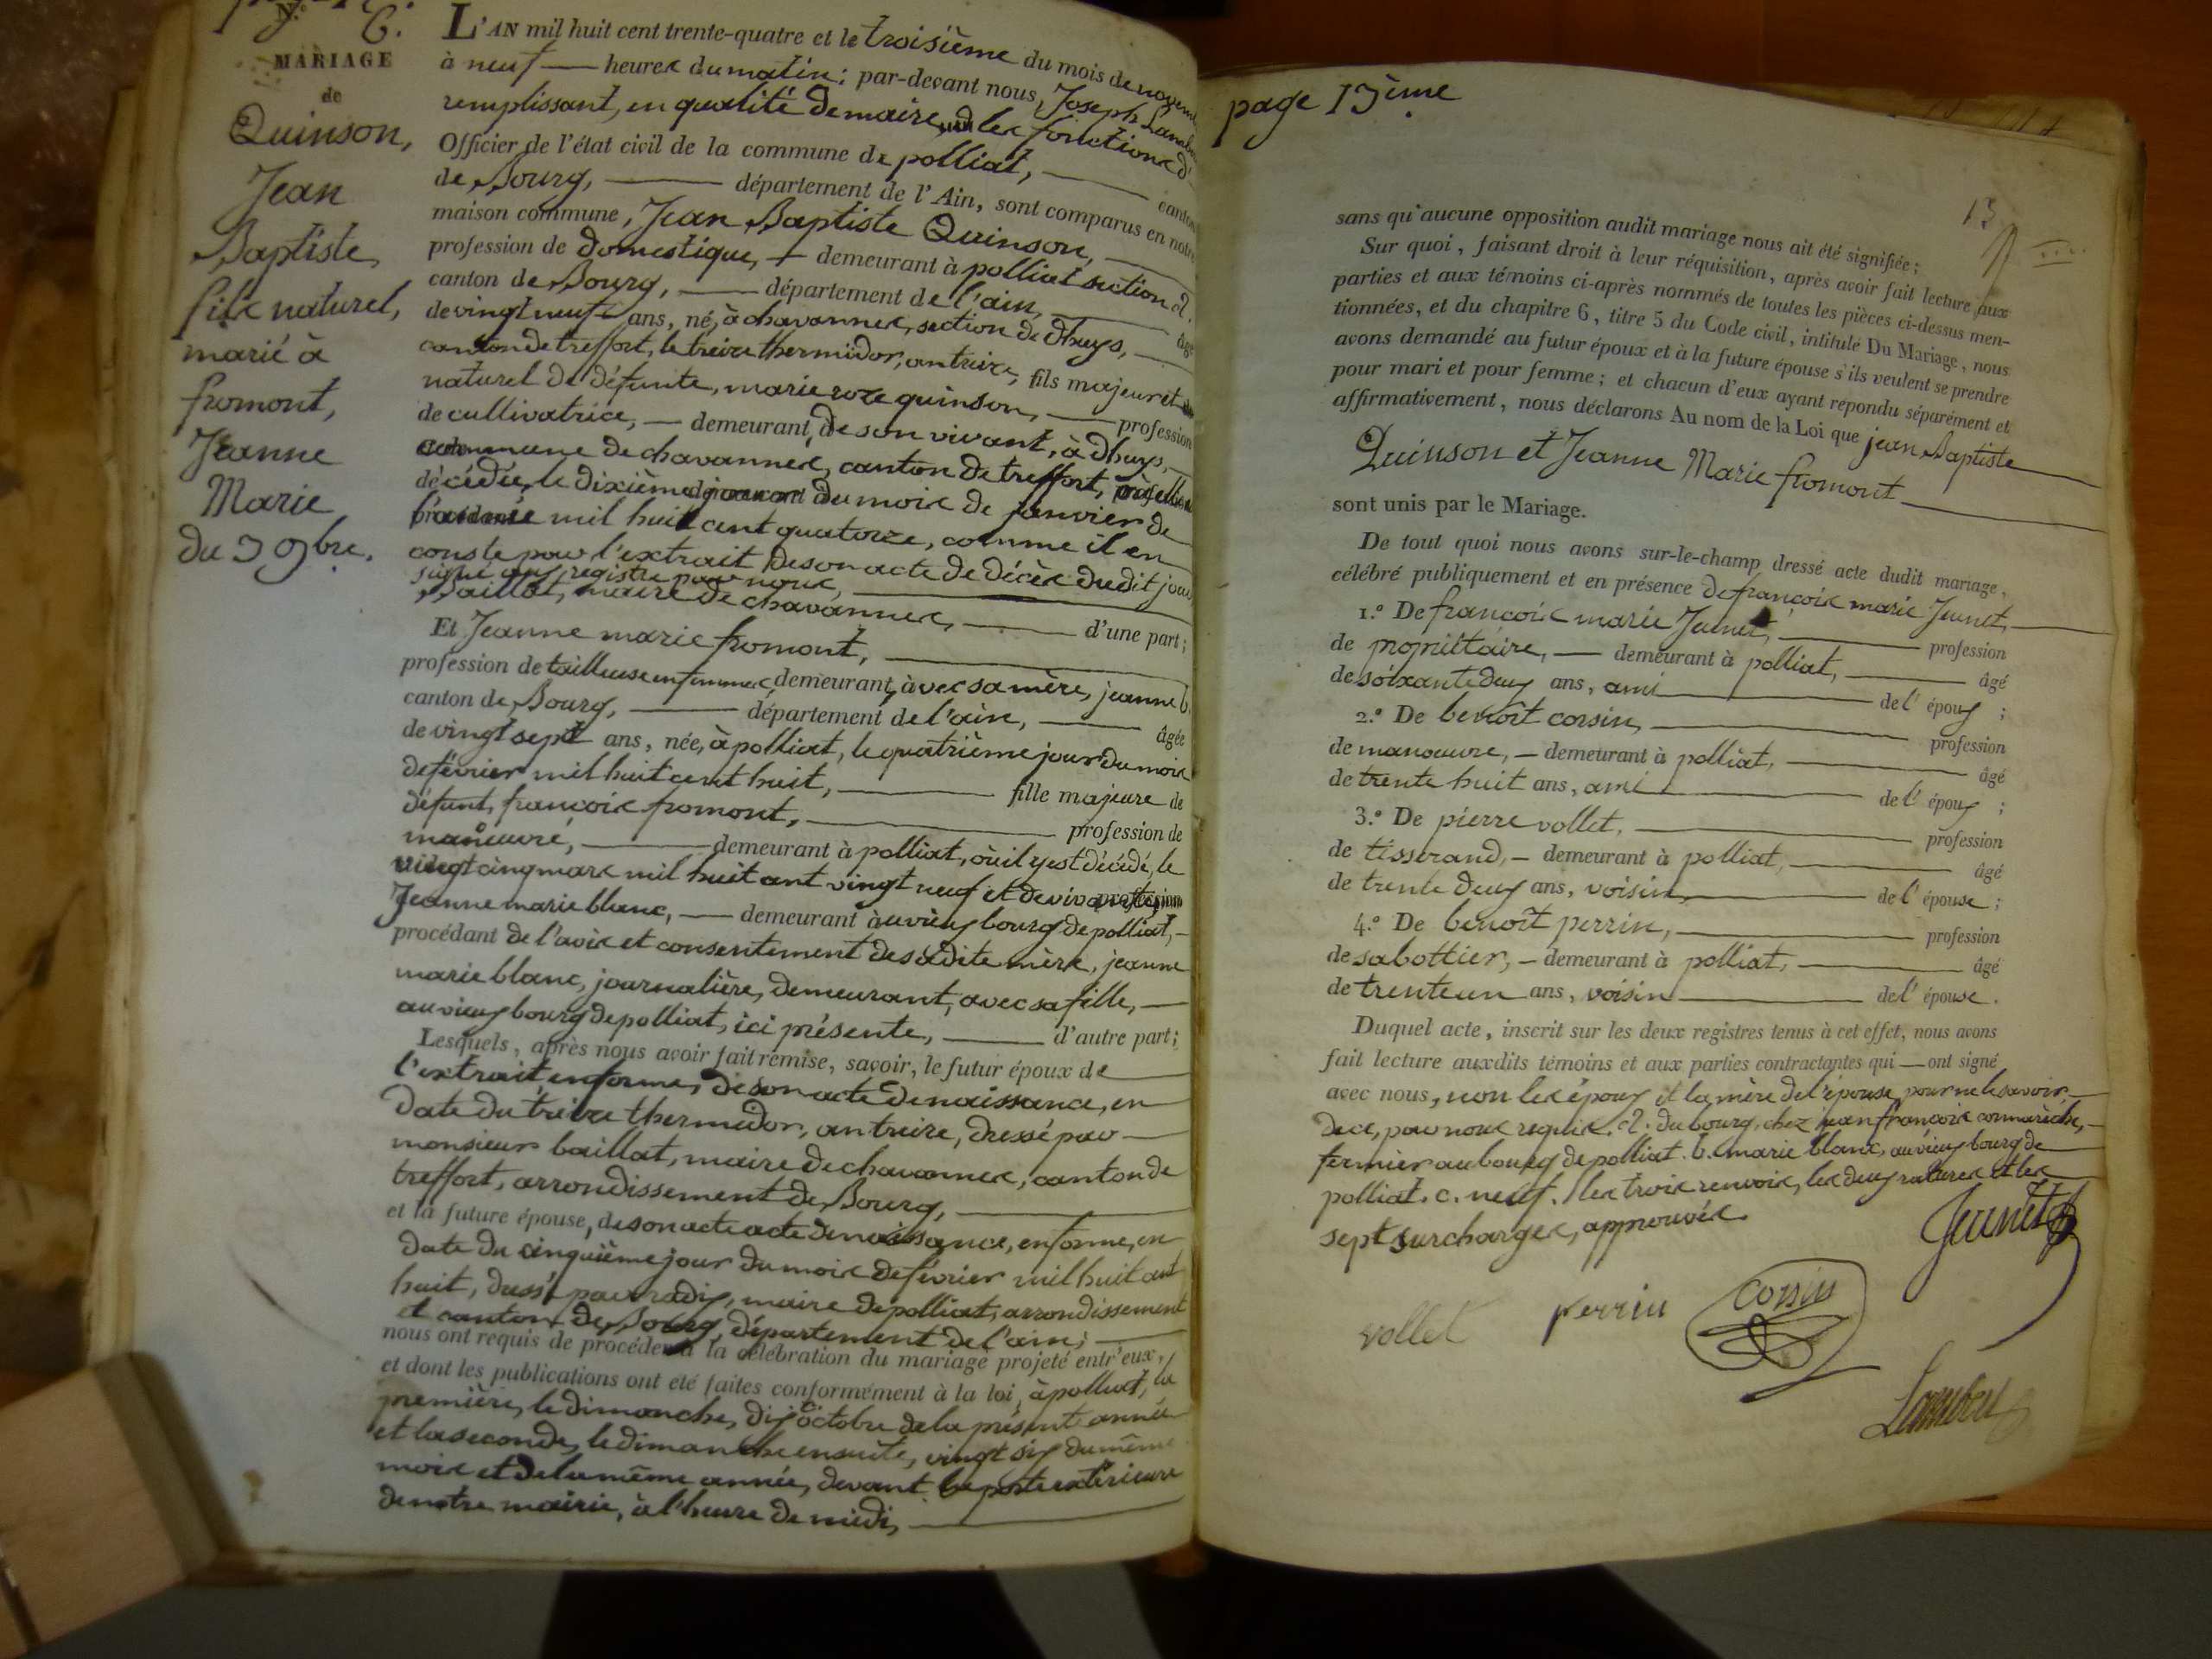 N.º 6.
MARIAGE
de
Quinson,
Jean
Baptiste,
fils naturel,
marié à
fromont,
Jeanne
Marie
du 3 9bre.
L'AN mil huit cent trente-quatre et le troisième du mois de novem
à neuf — heures du matin; par-devant nous, Joseph Lamb
remplissant, en qualité de maire, les fonctions d'
Officier de l'état civil de la commune de polliat, — canton
de Bourg, — département de l'Ain, sont comparus en notre
maison commune, Jean Baptiste Quinson, —
profession de domestique, + demeurant à polliat section a.
canton de Bourg, — département de l'ain, — âgé
de vingt neuf ans, né, à chavannes, section de Dhuys, —
canton de treffort, le treize thermidor, an treize, fils majeur et
naturel de défunte, marie roze quinson, — profession
de cultivatrice, — demeurant, de son vivant, à Dhuys, —
commune de chavannes, canton de treffort,
décédée, le dixième du mois de janvier de
l'année mil huit cent quatorze, comme il en
conste par l'extrait de son acte de décès dudit jour,
signé au registre par nous,
Baillat, maire de chavannes, — d'une part;
Et Jeanne marie fromont, —
profession de tailleuse en femmes, demeurant, avec sa mère, jeanne b.
canton de Bourg, — département de l'ain, — âgée
de vingt sept ans, née, à polliat, le quatrième jour du mois
de février mil huit cent huit, — fille majeure de
défunt, françois fromont, — profession de
manœuvre, — demeurant à polliat, où il y est décédé, le
vingt cinq mars mil huit cent vingt neuf et de vivante, profession
Jeanne marie blanc, — demeurant au vieux bourg de polliat, —
procédant de l'avis et consentement de sadite mère, jeanne
marie blanc, journalière, demeurant, avec sa fille, —
au vieux bourg de polliat, ici présente, — d'autre part;
Lesquels, après nous avoir fait remise, savoir, le futur époux de
l'extrait, en forme, de son acte de naissance, en
date du treize thermidor, an treize, dressé par —
monsieur baillat, maire de chavannes, canton de
treffort, arrondissement de Bourg, —
et la future épouse, de son acte acte de naissance, en forme, en
date du cinquième jour du mois de février mil huit cent
huit, dressé par radix, maire de polliat, arrondissement
et canton de Bourg, département de l'ain; —
nous ont requis de procéder à la célébration du mariage projeté entr'eux,
et dont les publications ont été faites conformément à la loi, à polliat, la
première, le dimanche, dix octobre de la présente année
et la seconde, le dimanche ensuite, vingt six du même
mois et de la même année, devant la porte extérieure
de notre mairie, à l'heure de midi, —
page 13ème
13
sans qu'aucune opposition audit mariage nous ait été signifiée;
Sur quoi, faisant droit à leur réquisition, après avoir fait lecture aux
parties et aux témoins ci-après nommés de toutes les pièces ci-dessus men-
tionnées, et du chapitre 6, titre 5 du Code civil, intitulé Du Mariage, nous
avons demandé au futur époux et à la future épouse s'ils veulent se prendre
pour mari et pour femme; et chacun d'eux ayant répondu séparément et
affirmativement, nous déclarons Au nom de la Loi que jean Baptiste
Quinson et Jeanne Marie fromont —
sont unis par le Mariage.
De tout quoi nous avons sur-le-champ dressé acte dudit mariage,
célébré publiquement et en présence de françois marie Jeunet, —
1.º De françois marie Jeunet, — profession
de propriétaire, — demeurant à polliat, — âgé
de soixante deux ans, ami — de l'époux;
2.º De benoît corsin, — profession
de manoeuvre, — demeurant à polliat, — âgé
de trente huit ans, ami — de l'époux;
3.º De pierre vollet, — profession
de tisserand, — demeurant à polliat, — âgé
de trente deux ans, voisin — de l'épouse;
4.º De benoît perrin, — profession
de sabottier, — demeurant à polliat, — âgé
de trente un ans, voisin — de l'épouse.
Duquel acte, inscrit sur les deux registres tenus à cet effet, nous avons
fait lecture auxdits témoins et aux parties contractantes qui — ont signé
avec nous, non les époux et la mère de l'épouse, pour ne le savoir, —
de ce, par nous requis. a. du bourg, chez jean françois connarèche, —
fermier au bourg de polliat. b. marie blanc, au vieux bourg de
polliat. c. neuf. les trois renvois, les deux ratures et les
sept surcharges, approuvés.
Jeunet
vollet perrin corsin
Lambert